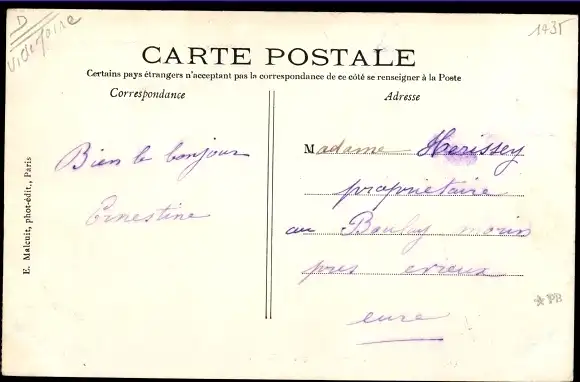 D
1435
CARTE POSTALE
Certains pays étrangers n'acceptant pas la correspondance de ce côté se renseigner à la Poste
Correspondance
Adresse
Bien le bonjour
Ernestine
Madame Herissey
propriétaire
au Boulay morin
pres evreux
eure
E. Malcuit, phot-édit., Paris
*PB